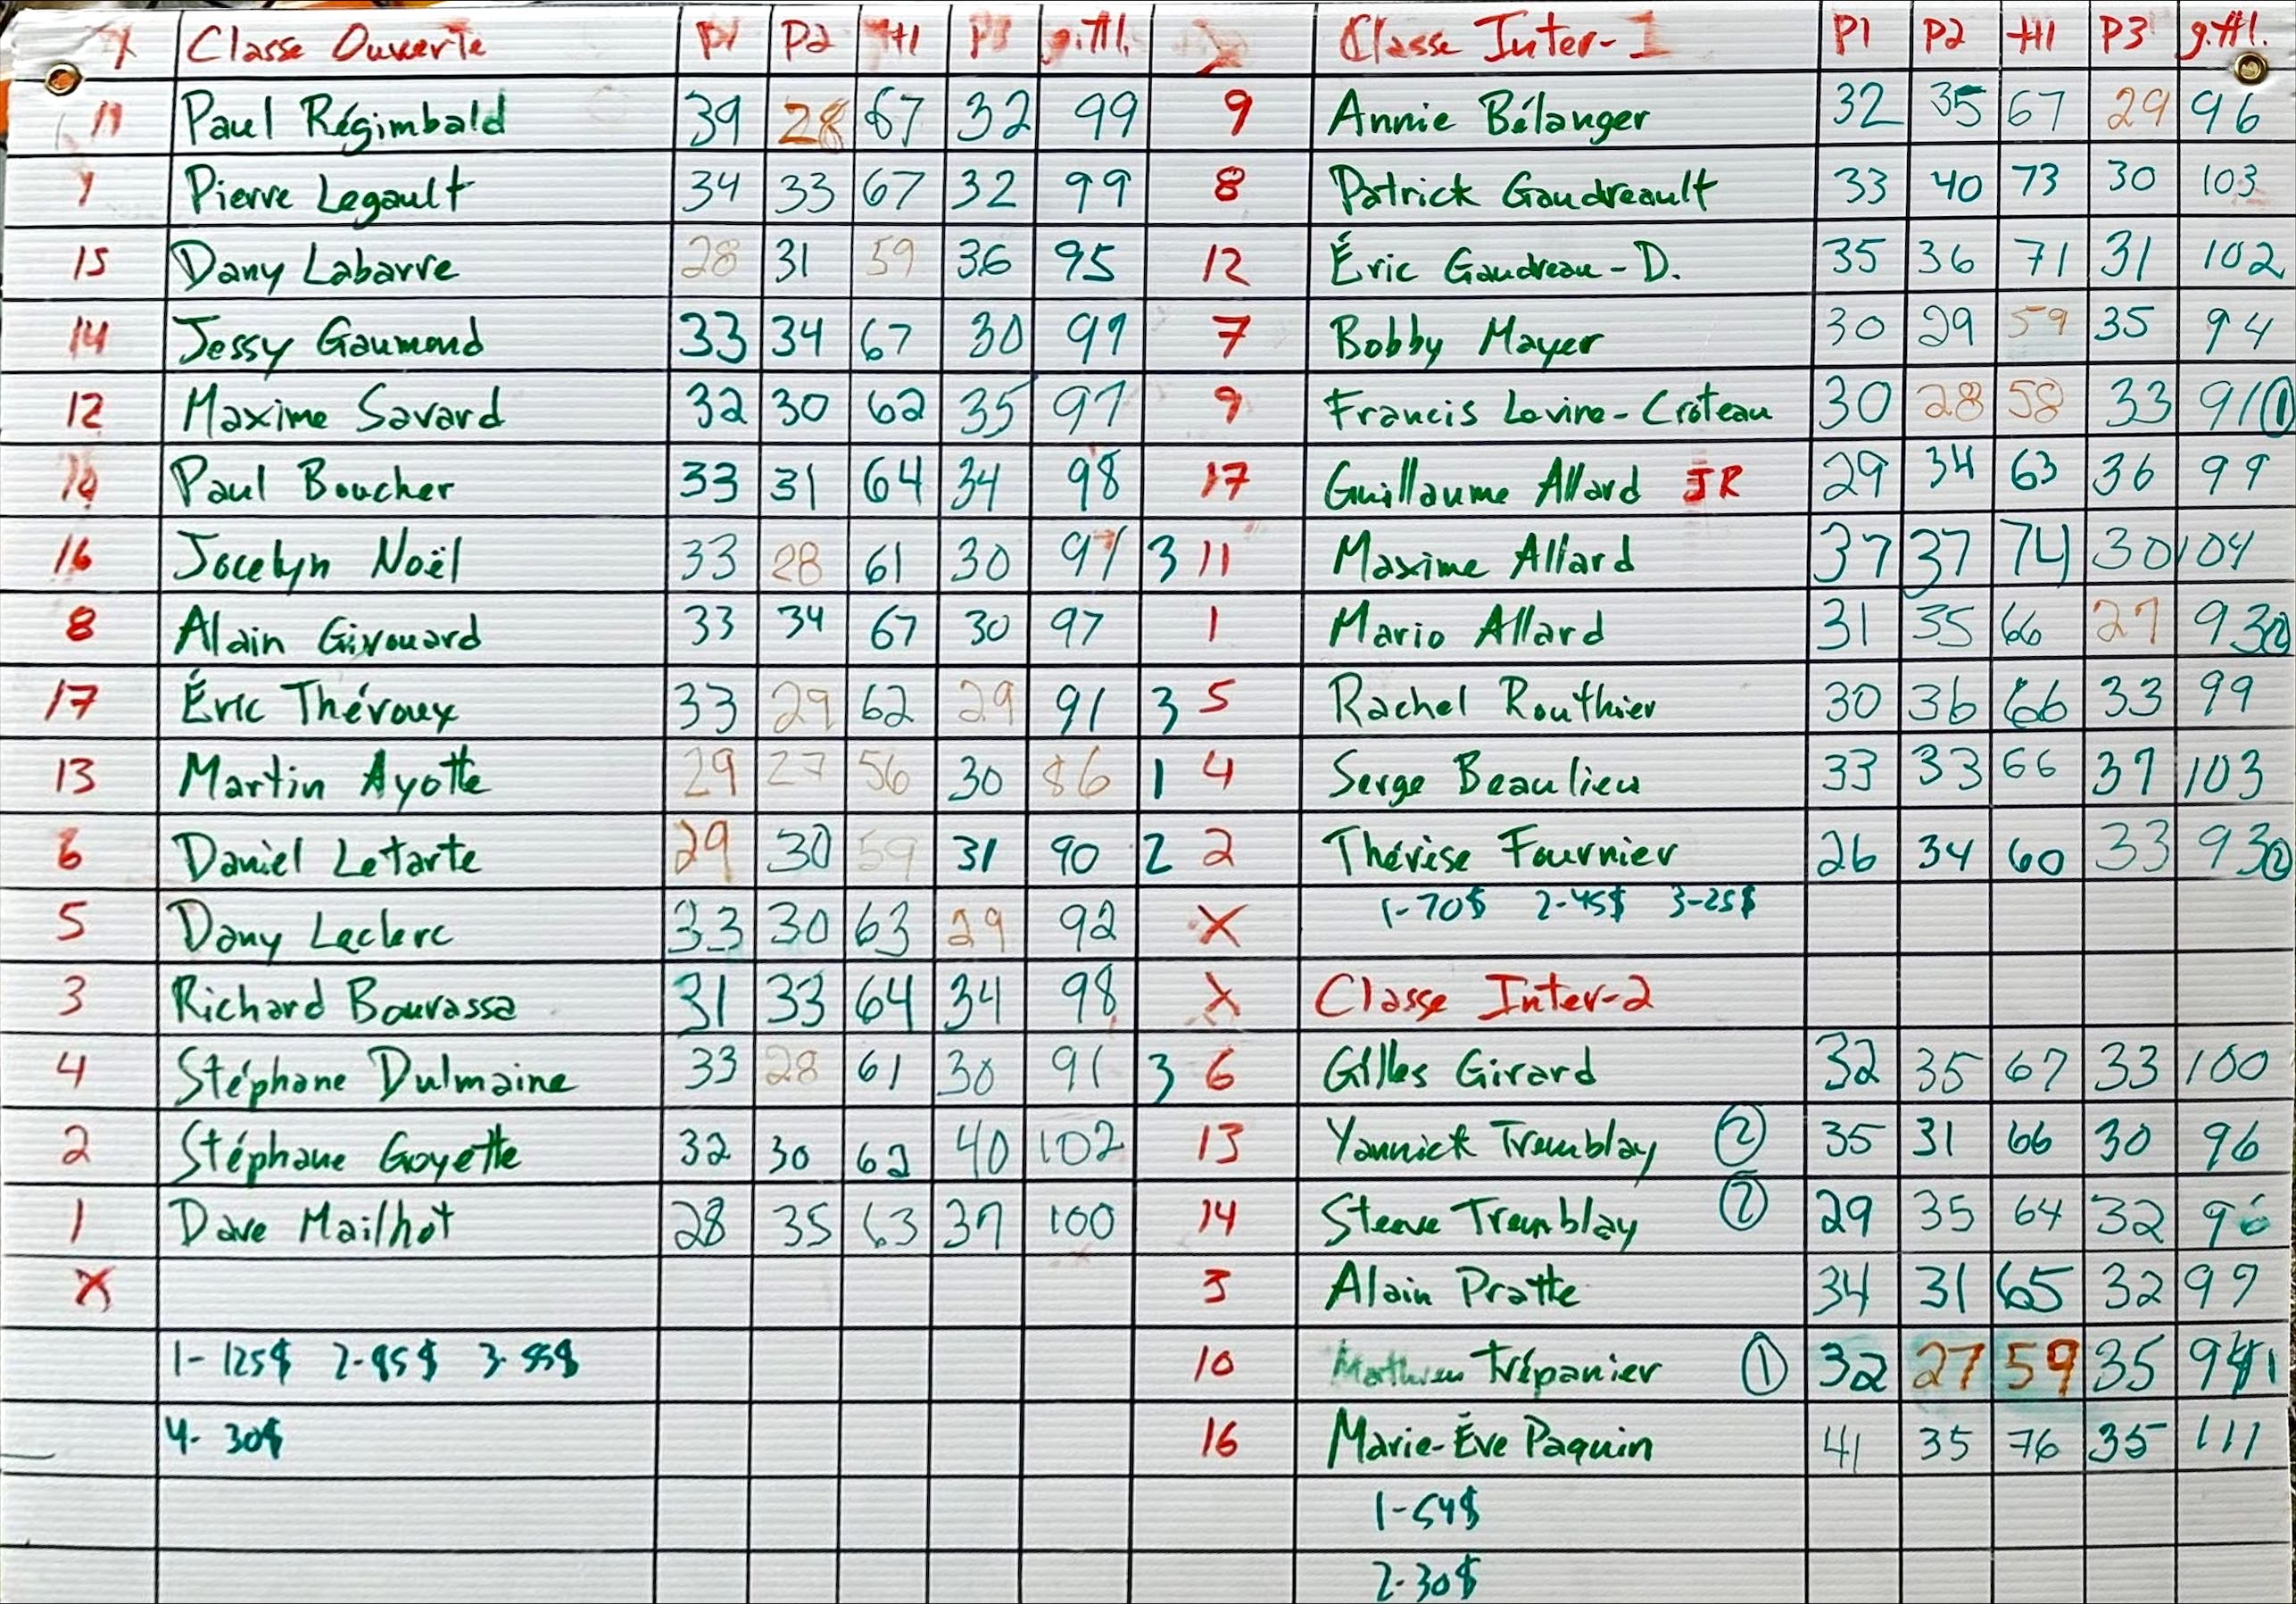 X Classe Ouverte P1 P2 ttl P3 g.ttl.
11 Paul Régimbald 39 28 67 32 99
7 Pierre Legault 34 33 67 32 99
15 Dany Labarre 28 31 59 36 95
14 Jessy Gaumond 33 34 67 30 97
12 Maxime Savard 32 30 62 35 97
Paul Boucher 33 31 64 34 98
16 Jocelyn Noël 33 28 61 30 91 3
8 Alain Girouard 33 34 67 30 97
17 Éric Théroux 33 29 62 29 91 3
13 Martin Ayotte 29 27 56 30 86 1
6 Daniel Letarte 29 30 59 31 90 2
5 Dany Leclerc 33 30 63 29 92
3 Richard Bourassa 31 33 64 34 98
4 Stéphane Dulmaine 33 28 61 30 91 3
2 Stéphane Goyette 32 30 62 40 102
1 Dave Mailhot 28 35 63 37 100
X
1- 125$ 2-85$ 3-55$
4- 30$
Classe Inter-1 P1 P2 ttl P3 g.ttl.
9 Annie Bélanger 32 35 67 29 96
8 Patrick Gaudreault 33 40 73 30 103
12 Éric Gaudreau-D. 35 36 71 31 102
7 Bobby Mayer 30 29 59 35 94
9 Francis Lavine-Croteau 30 28 58 33 91 1
17 Guillaume Allard JR 29 34 63 36 99
11 Maxime Allard 37 37 74 30 104
1 Mario Allard 31 35 66 27 93 2
5 Rachel Routhier 30 36 66 33 99
4 Serge Beaulieu 33 33 66 37 103
2 Thérèse Fournier 26 34 60 33 93 2
X 1-70$ 2-45$ 3-25$
X Classe Inter-2
6 Gilles Girard 32 35 67 33 100
13 Yannick Tremblay 2 35 31 66 30 96
14 Steeve Tremblay 2 29 35 64 32 96
3 Alain Pratte 34 31 65 32 97
10 Mathieu Trépanier 1 32 27 59 35 94 1
16 Marie-Ève Paquin 41 35 76 35 111
1-54$
2-30$